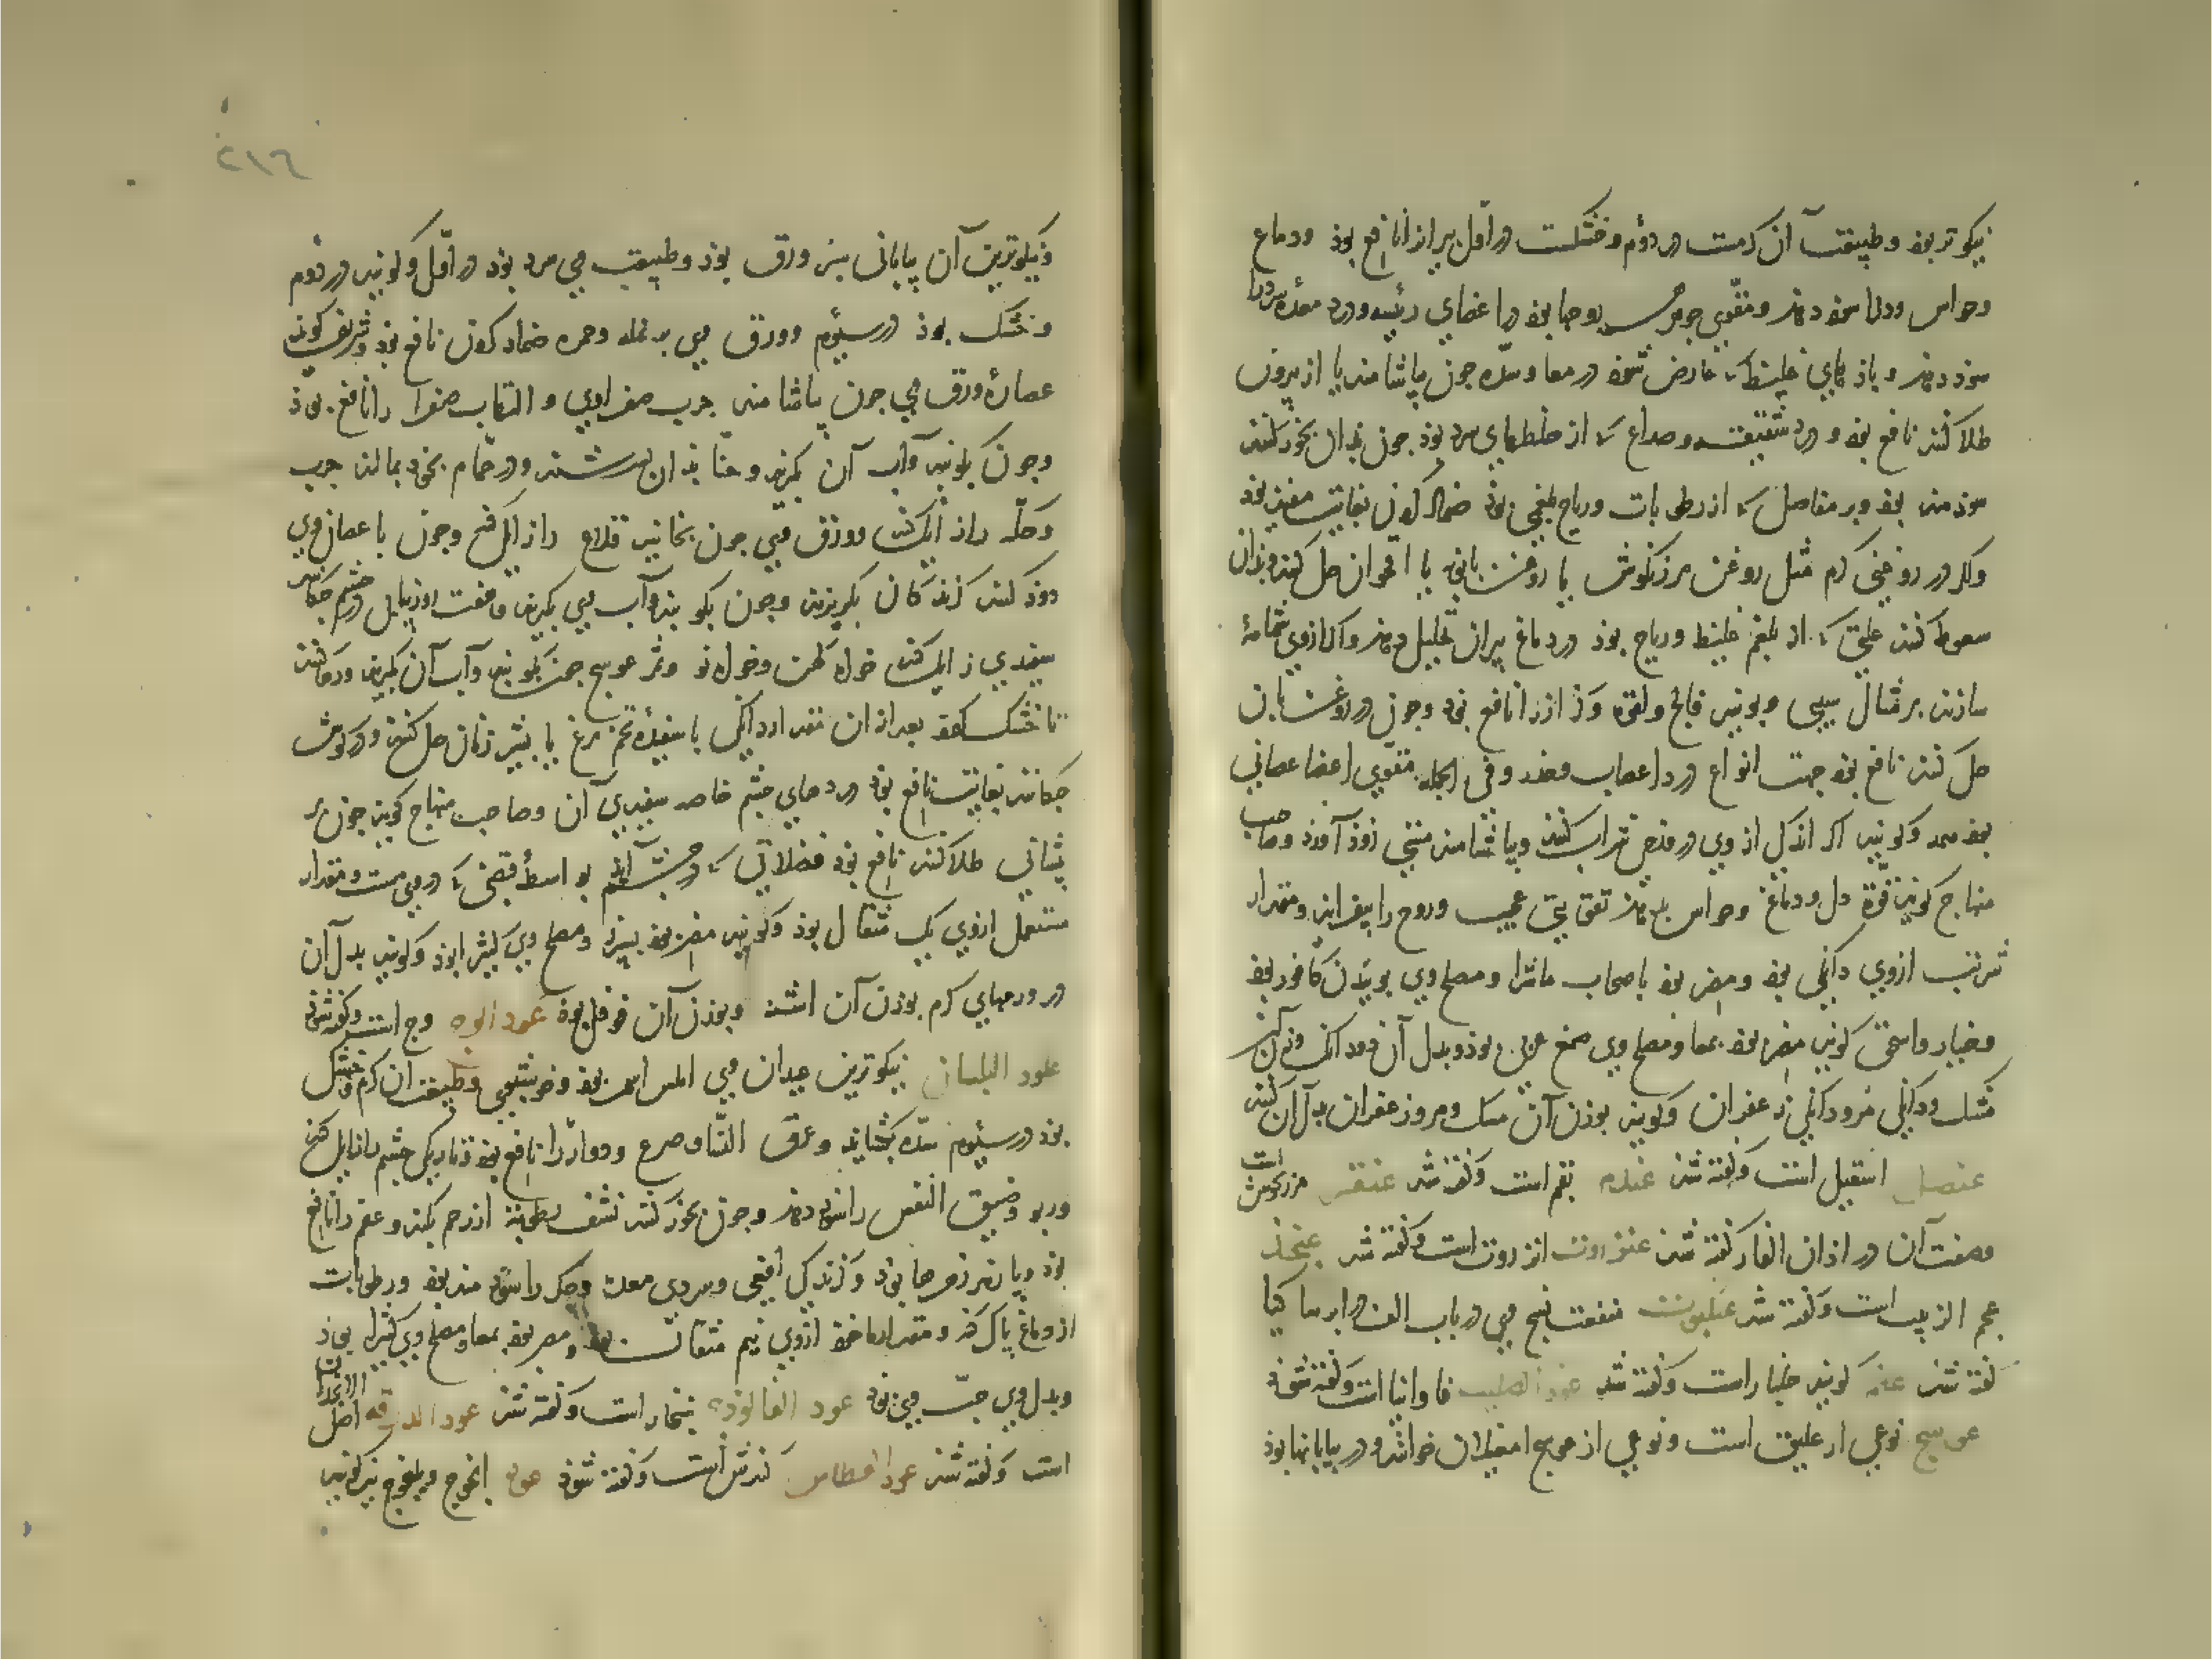 نیکوتر بود و طبیعت آن کرمست در دوّم و خشکست در اوّل پیرانرا نافع بود و دماغ
و حواس و دلرا سود دهد و مقوّی جوهر روحها بود در اعضای رئیسه و درد معده سردرا
سود دهد و بادهای غلیظ که عارض شود در معا و سدّه چون بیاشامند یا از بیرون
طلا کنند نافع بود و درد شقیقه و صداع که از خلطهای سرد بود چون بذان بخور کنند
سودمند بود و بر مفاصل که از رطوبات و ریاح بلغمی بود ضماد کردن بغایت مفید بود
واکر در روغنی کرم مثل روغن مرزنکوش یا روغن بابونه یا اقحوان حل کنند و بذان
سعوط کنند علتی که از بلغم غلیظ و ریاح بود در دماغ پیران تحلیل دهد واکر ازوی شمامهٔ
سازند بر مثال سیبی و بویند فالج و لقوه و کزازرا نافع بود و چون در روغن بان
حل کنند نافع بود جهت انواع درد اعصاب و معده و فی الجمله مقوی اعضا عصبانی
بود و کویند اکر اندکی از وی در قدح شراب کنند و بیاشامند مستی زود آورد و صاحب
منهاج کوید قوّة دل و دماغ و حواس بدهد تقویتی عجیب و روح را بیفزاید و مقدار
شربت ازوی دانکی بود و مضر بود باصحاب ماشرا و مصلح وی بوئیدن کافور بود
و خیار و اسحق کوید مضر بود بمعا و مصلح وی صمغ عربی بود و بدل آن دو دانک وزن آن
مشک و دانکی مرو دانکی زعفران و کویند بوزن آن مشک و مرو زعفران بدل آن کنند
عنصل اسقیل است و کفته شد عندم بقم است و کفته شد عنقر مرزنجوش است
وصفت آن در اذان الفار کفته شد عنزروت انزروت است و کفته شد عنجد
عجم الزبیب است و کفته شد عنکبوت منفعت نسج وی در باب الف در ابرماکیا
کفته شد کویند خیار است و کفته شد عود الصلیب فاوانیا است و کفته شود
عوسج نوعی از علیق است و نوعی از عوسج امغیلان خوانند و در بیابانها بود
و نیکوترین آن بیابانی سبز ورق بود و طبیعت وی سرد بود در اوّل و کویند در دوم
و خشک بود در سیّوم و ورق وی بر نمله و حمره ضماد کردن نافع بود و شریف کوید
عصارهٔ ورق وی چون بیاشامند جرب صفراوی و التهاب صفرا را نافع بود
و چون بکوبند و آب آن بکیرند و حنّا بذان بسرشند و در حمّام بخود بمالند جرب
و حکّه را زایل کند و ورق وی چون بخایند قلاع را زایل کند و چون با عصاره وی
دود کنند کزندکان بکریزند و چون بکوبند و آب وی بکیرند و هفت روز پیاپی در چشم چکانند
سفیدی زایل کند خواه کهن و خواه نو و ثمر عوسج چون بکوبند و آب آن بکیرند و رها کنند
تا خشک شود بعد از ان مقدار دانکی با سفیدهٔ تخم مرغ یا بشیر زنان حل کنند و در کوش
چکانند بغایت نافع بود دردهای چشم خاصه سفیدی آن و صاحب منهاج کوید چون بر
پیشانی طلا کنند نافع بود فضلاتی که در چشم آید بواسطهٔ قبضی که در وی هست و مقدار
مستعمل ازوی یک مثقال بود و کویند مضر بود بسپرز و مصلح وی کثیرا بود و کویند بدل آن
در ورمهای کرم بوزن آن اشنه و بوزن آن فوفل بود عود الوج وج است و کفته شود
عود البلسان نیکوترین عیدان وی املس بود و خوشبوی و طبیعت آن کرم و خشک
بود در سیّوم سدّه بکشاید و عرق النّسا و صرع و دوار را نافع بود و تاریکی چشم را زایل کند
و ربو و ضیق النفس را سود دهد و چون بخور کنند نشف رطوبت از رحم بکند و عقم را نافع
بود و پازهر زهرها بود و کزندکی افعی و سردی معده و جکر را سودمند بود و رطوبات
از دماغ پاک کند و مقدار ماخوذ ازوی نیم مثقال بود و مضر بود بمعا و مصلح وی کثیرا بود
و بدل وی حبّ وی بود عود الفالوذج است و کفته شد عود الدرقه اصل الانجدان
است و کفته شد عود العطاس کندش است و کفته شود انجوج و یلنجوج نیز کویند